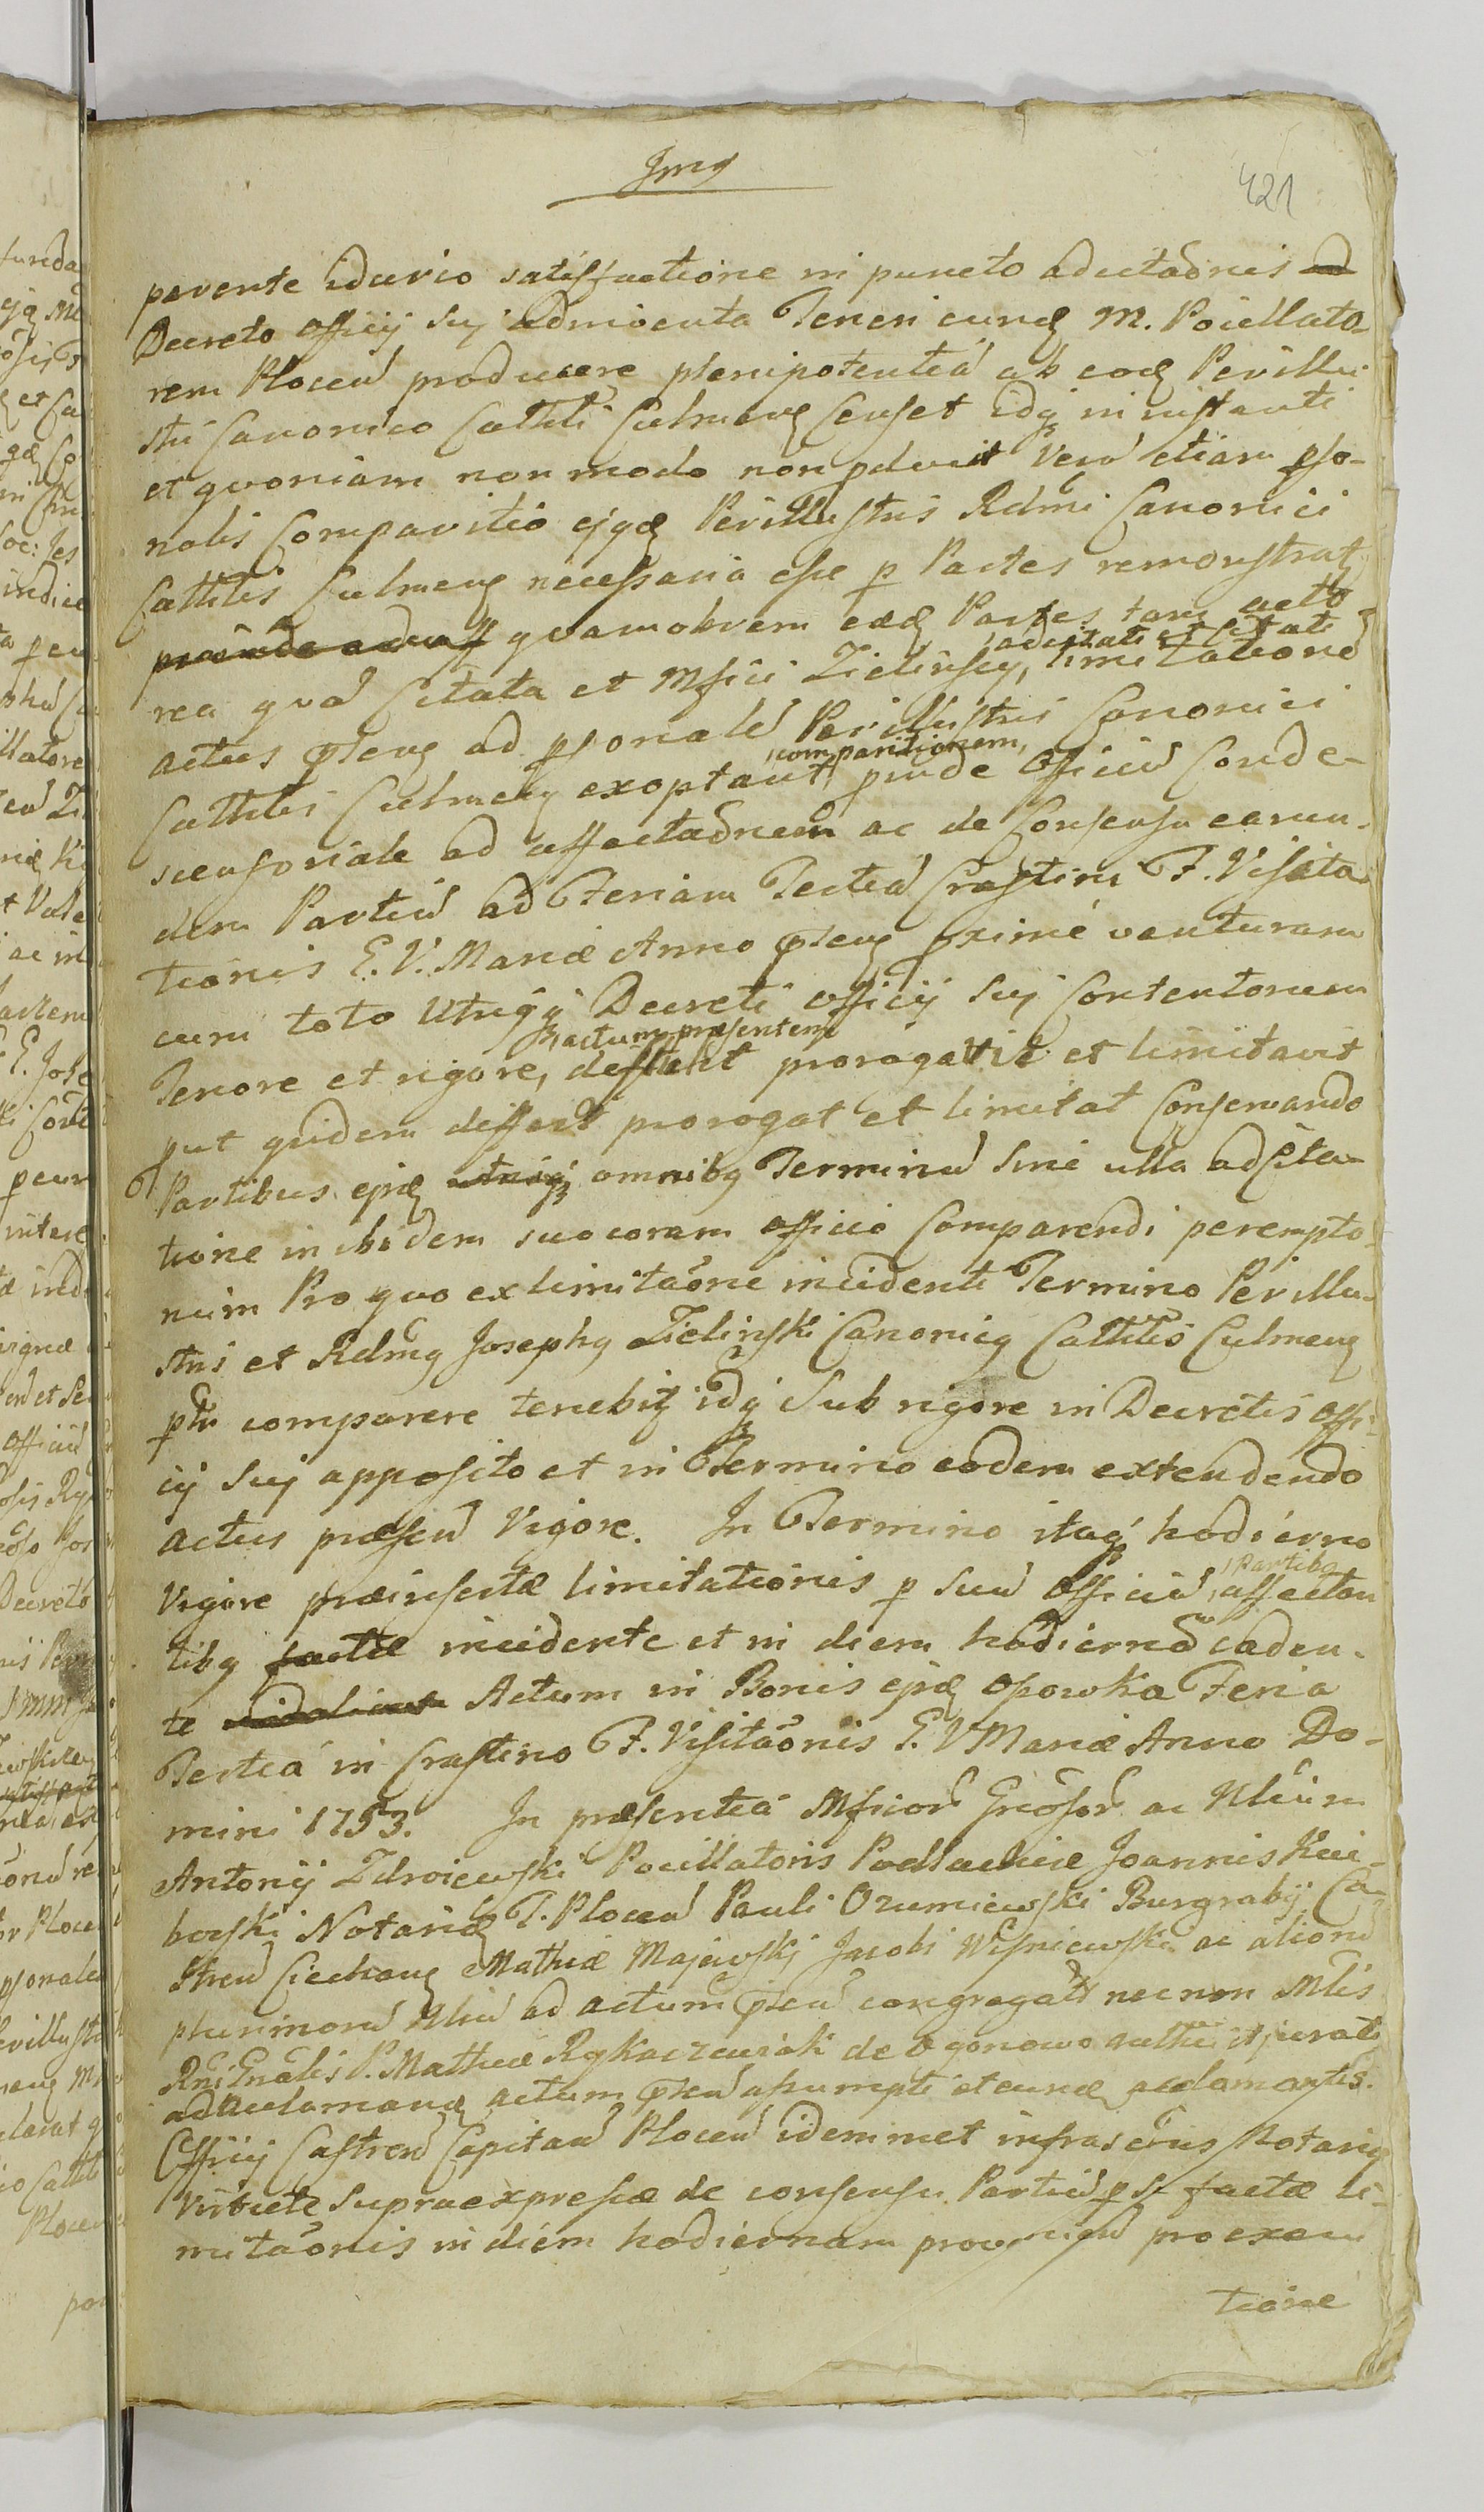 421
parente iducio satisfactione in puncto adcitaõnis ad
Decreto Officij Sui admicenta Teneri eundẽ M. Pocillato-
rem Plocen̄ producere plenipotentiã ab eodẽ Perillu-
stri Canonico Cathli Culmenẽ Censet idq̃ in instanti
et quoniam non modo non pduxit Verũ etiam pso-
nalis Comparitio ejqdẽ Perillustris Rdmi Canonici
Cathlis Culmenẽ necessaria esse p Partes remonstratꝫ
quamobrem eaedẽ Partes tam acto-
rea quã Citata et Mfici Zielinscy, adcitati et Citati limitationẽ
actus p̃senẽ ad psonalẽ Perillustris Canonici
Cathlis Culmenẽ exoptant, comparitionem, pinde Officiũ Conde-
scensoriale ad affectaõnem ac de Consensu earun-
dem Partiũ ad Feriam Tertiã Crastini F. Visita-
tionis E. V. Mariæ Anno p̃senẽ pxime venturam
cum toto Utriusqꝫ Decreti Officij Sui Contentorum
Tenore et rigore, actum præsentem differt prorogavit et limitavit
put quidem differt prorogat et limitat Conservando
Partibus ejsdẽ omnibꝯ Terminũ Sine ulla adcita-
tione inibidem suo coram Officio Comparendi perempto-
rium Pro quo ex limitaõne incidenti Termino Perillu-
stris et Rdmꝯ Josephꝯ Zielinski Canonicꝯ Cathlis Culmenẽ
psltr comparere tenebitꝫ idqꝫ Sub rigore in Decretis Offi-
cij Sui apposito et in Termino eodem extendendo
actus præsen̄ Vigore. In Termino itaqꝫ hodierno
Vigore præinsertæ limitationis p suũ Officiũ Partibꝯ affectan
tibꝯ factæ incidente et in diem hodiernã caden-
te Actum in Bonis ejsdẽ Opowka Feria
Tertia in Crastino F. Visitaõnis E. V Mariæ Anno Do-
mini 1753. In præsentia Mficor Gnõsor ac Nlium
Antonij Zdroiewski Pocillatoris Podlachiæ Joannis Kui-
borski Notarij T. Plocen̄ Pauli Ozumiewski Burgrabij Ca-
stren̄ Ciechanẽ Mathiæ Majewskj Jacobi Wisniewski ac alionũ
plurimorũ Nliũ ad actum p̃sen̄ congregatꝫ necnon Mlis
Rni Gnalis P. Mathiæ Rykaczewski de Ogonowo authei et jurati
ad acclamanẽ actum p̃sen̄ assumpti et eundẽ acclamantis.
Officij Castren̄ Capitan̄ Plocen̄ idemmet infrascrius Notariꝯ
Virtute supraexpressæ de consensu Partiũ p se factæ li-
mitaõnis in diem hodiernam proveniẽ pro exæcu
tione